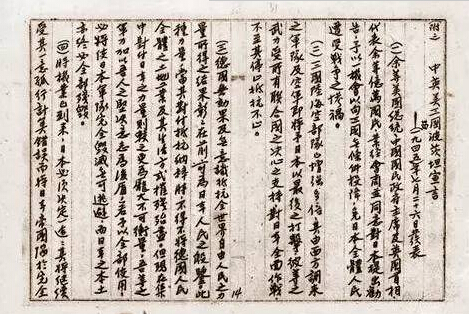 附二 中英美三國波茨坦宣言
一九四五年七月二十六日發表
(一)余等美國總統中國國民政府主席及英國首相
代表余等億萬國民業經會商並同意對日本提出勸
告予以一機會以向三國無條件投降,免日本全體人民
遭受戰爭之慘禍。
(二)三國陸海空部隊已增強多倍,其由西方調來
之軍隊及空軍即將予日本以最後之打擊,彼等之
武力受所有聯合國之決心之支持對日本全面作戰,
不至其停止抵抗不止。
(三)德國無効果及無意識抵抗全世界自由人民之力
量所得之結果彰彰在前,可為日本人民之殷鑒,此
種力量當其對付抵抗納粹時不得不將德國人民
全體之土地工業及其生活方式摧殘殆盡。但現在集
中對付日本之力量則較之更為龐大不可衡量,吾等之
軍力加以吾人之堅決意志為後盾,若予以全部使用,
必將使日本軍隊完全毀滅無可逃避,而日本之本土
亦終必全部殘毀。
(四)時機業已到來,日本必須決定一途,其將繼續
受其一意孤行計算錯誤而將日本帝國陷於完全
14